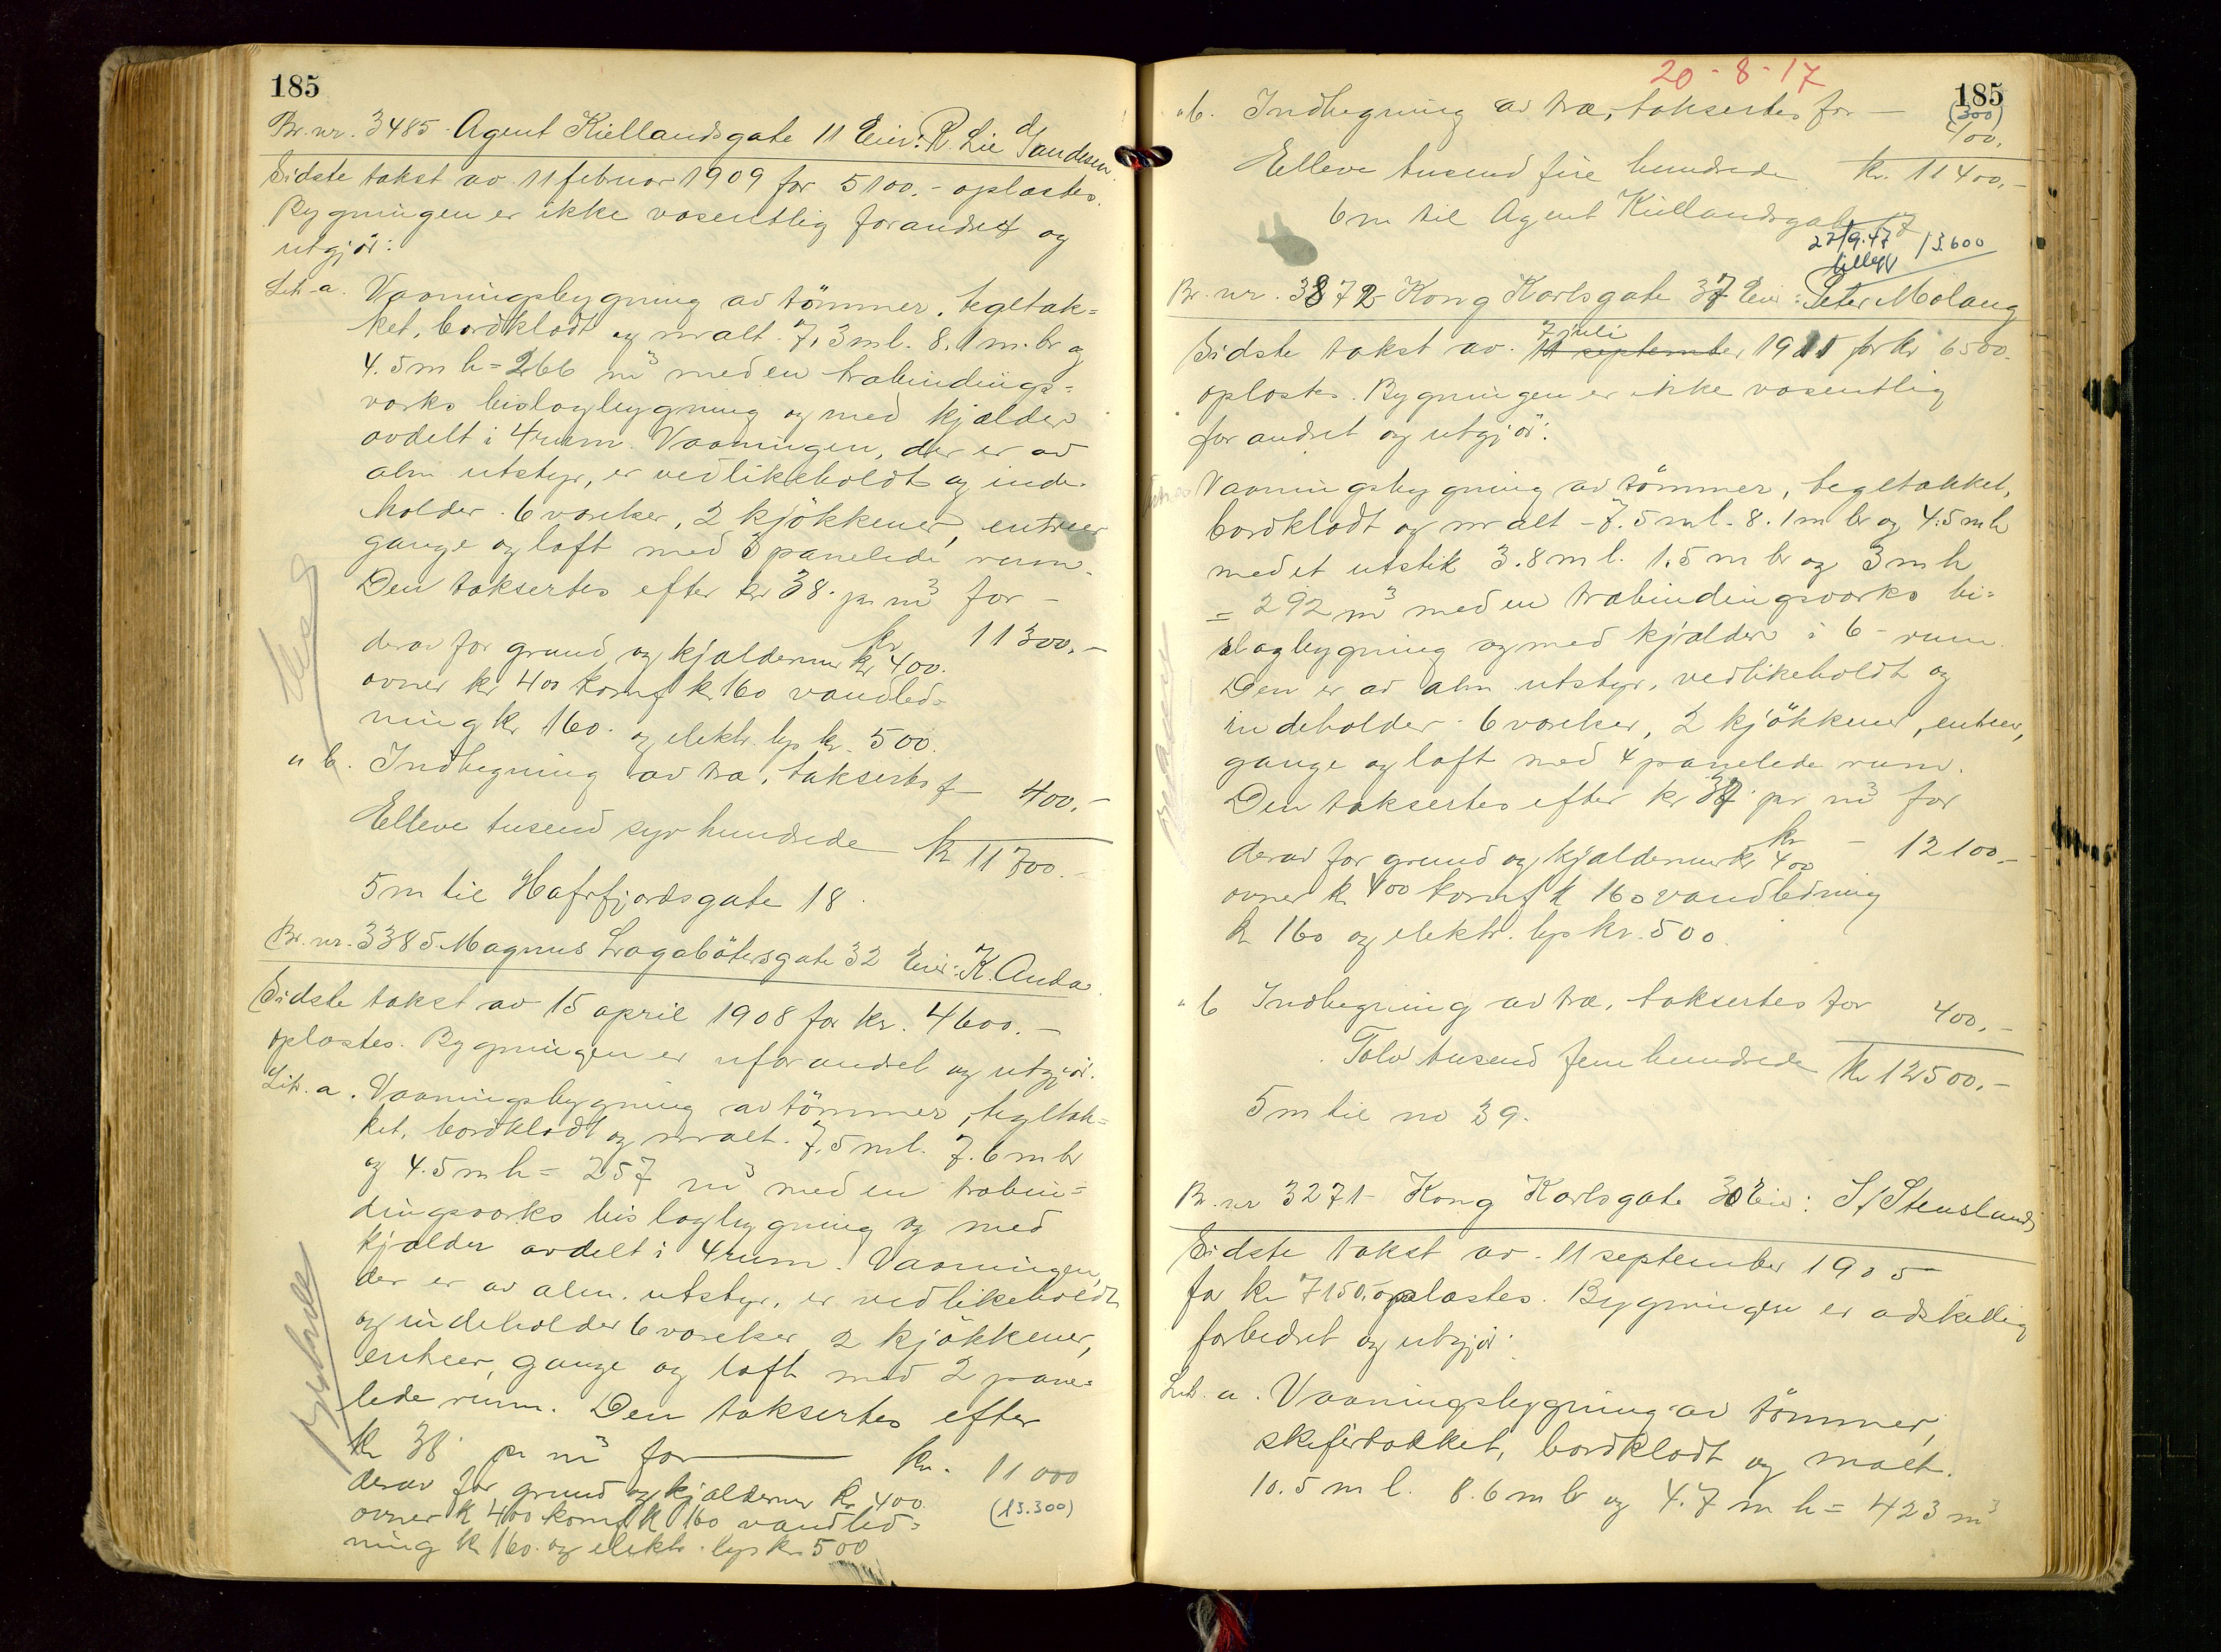 185
Br. nr. 3485 Agent Kiellandsgate 11 Eier: R. Lie
Sidste takst av 11 februar 1909 for 5100.- oplæstes.
Bygningen er ikke væsentlig forandret og
utgjør:
Lit. a. Vaaningsbygning av tömmer, tegltæk=
ket, bordklædt og malt. 7,3 m l. 8.1 m. br og
4.5 m h = 266 m³ med en træbindings=
værks bislagbygning og med kjælder
avdelt i 4 rum. Vaaningen, der er av
alm utstyr, er vedlikeholdt og inde-
holder 6 værelser, 2 kjökkener, entreer
gange og loft med 3 panelede rum.
Den taksertes efter kr 38. pr m³ for -
kr 11300.-
derav for grund og kjældermur kr 400.
ovner kr 400 komf kr 160 vandled-
ning kr 160. og elektr. lys kr. 500.
" b. Indhegning av træ, taksertes f - 400.-
Elleve tusend syv hundrede kr 11700.-
5 m til Hafrfjordsgate 18.
Br. nr. 3385 Magnus Lagabötersgate 32 Eier: K. Anda.
Sidste takst av 15 april 1908 for kr. 4600.-
oplæstes. Bygningen er uforandret og utgjør.
Lit. a. Vaaningsbygning av tömmer, tegltæk=
ket, bordklædt og malt. 7.5 m l. 7.6 m br
og 4.5 m h = 257 m³ med en træbin=
dingsværks bislagbygning og med
kjælder avdelt i 4 rum. Vaaningen,
der er av alm. utstyr, er vedlikeholdt
og indeholder 6 værelser, 2 kjökkener,
entreer, gange og loft med 2 pane=
lede rum. Den taksertes efter
kr 38. pr m³ for kr. 11000
derav for grund og kjældermur kr 400.
(13.300)
ovner kr 400 komf kr 160 vandled=
ning kr 160. og elektr. lys kr 500
20-8-17
185
" b. Indhegning av træ, taksertes for -
(300)
400.
Elleve tusend fire hundrede kr. 11400.-
6 m til Agent Kiellandsgate 17
22/9.47 13.600
tillegg
Br. nr. 3872 Kong Karlsgate 37 Eier: Peter Molaug
7 juli
Sidste takst av 11 september 1915 for kr 6500.
oplæstes. Bygningen er ikke væsentlig
forandret og utgjör:
Vaaningsbygning av tömmer, tegltækket,
bordklædt og malt - 7.5 m l. 8.1 m br og 4.5 m h
med et utstik 3.8 m l. 1.5 m br og 3 m h
= 292 m³ med en træbindingsværks bi=
slagbygning og med kjælder i 6 rum.
Den er av alm utstyr, vedlikeholdt og
indeholder 6 værelser, 2 kjökkener, entreer,
gange og loft med 4 panelede rum.
Den taksertes efter kr 37. pr m³ for
kr - 12100.-
derav for grund og kjældermur kr 400
ovner kr 400 komf kr 160 vandledning
kr 160 og elektr. lys kr. 500.
" b Indhegning av træ, taksertes for 400.-
Tolv tusend fem hundrede kr 12500.-
5 m til no 39.
Br. nr 3271 - Kong Karlsgate 30 Eier: S. Stensland
Sidste takst av 11 september 1905
for kr 7150.- oplæstes. Bygningen er adskillig
forbedret og utgjör:
Lit. a. Vaaningsbygning av tömmer,
skifertækket, bordklædt og malt.
10.5 m l. 8.6 m br og 4.7 m h = 423 m³